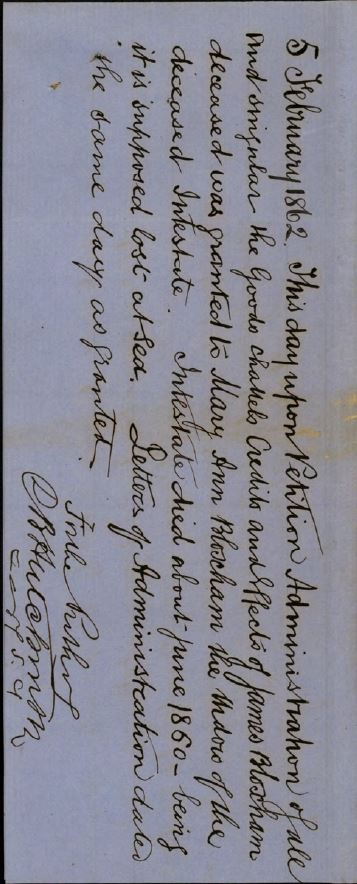 5 February 1862. This day upon Petition Administration of all
and singular the Goods chattels Credits and Effects of James Bloxham
deceased was granted to Mary Ann Bloxham the Widow of the
deceased Intestate. Intestate died about June 1860 - being
it is supposed lost at Sea. Letters of Administration dated
the same day as granted
For the